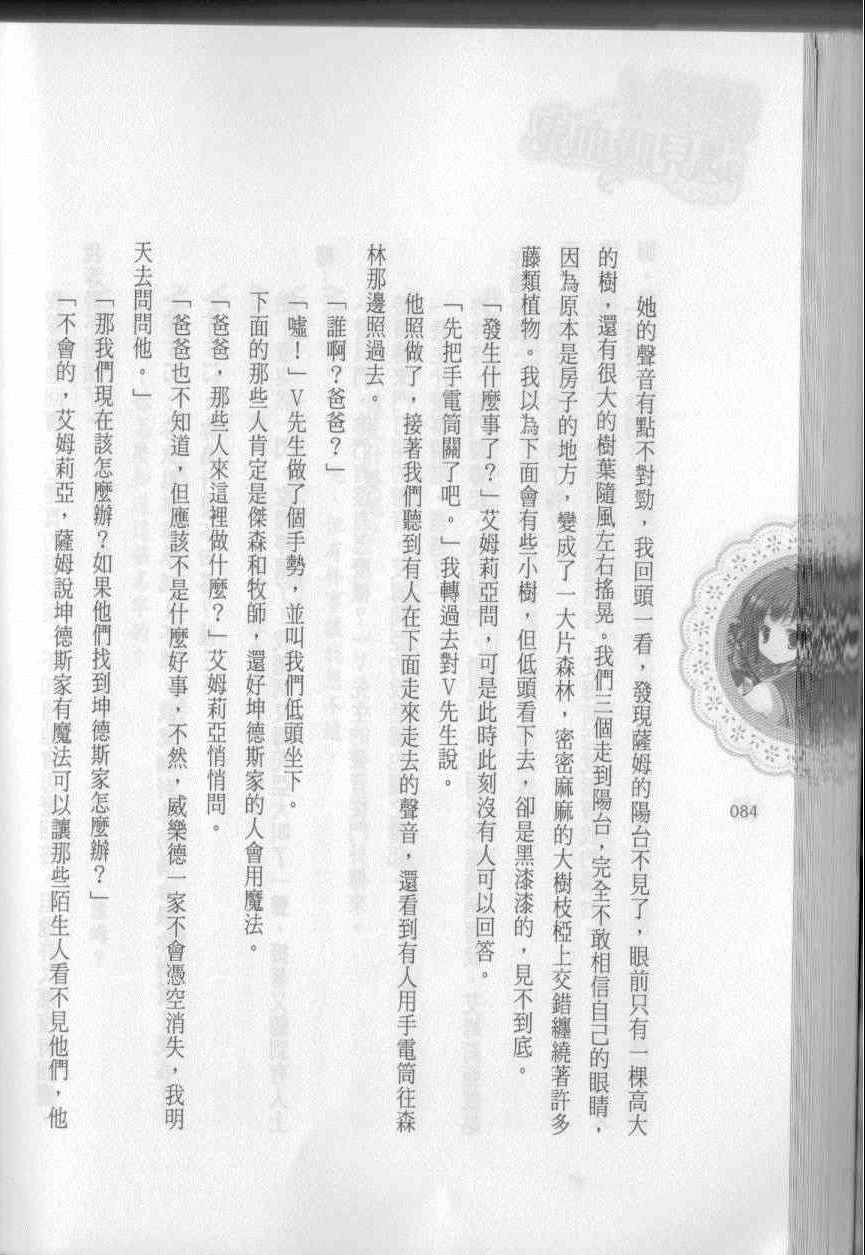 她的聲音有點不對勁，我回頭一看，發現薩姆的陽台不見了，眼前只有一棵高大
的樹，還有很大的樹葉隨風左右搖晃。我們三個走到陽台，完全不敢相信自己的眼睛，
因為原本是房子的地方，變成了一大片森林，密密麻麻的大樹枝椏上交錯纏繞著許多
藤類植物。我以為下面會有些小樹，但低頭看下去，卻是黑漆漆的，見不到底。
「發生什麼事了？」艾姆莉亞問，可是此時此刻沒有人可以回答。
「先把手電筒關了吧。」我轉過去對Ｖ先生說。
他照做了，接著我們聽到有人在下面走來走去的聲音，還看到有人用手電筒往森
林那邊照過去。
「誰啊？爸爸？」
「噓！」Ｖ先生做了個手勢，並叫我們低頭坐下。
下面的那些人肯定是傑森和牧師，還好坤德斯家的人會用魔法。
「爸爸，那些人來這裡做什麼？」艾姆莉亞悄悄問。
「爸爸也不知道，但應該不是什麼好事，不然，威樂德一家不會憑空消失，我明
天去問問他。」
「那我們現在該怎麼辦？如果他們找到坤德斯家怎麼辦？」
「不會的，艾姆莉亞，薩姆說坤德斯家有魔法可以讓那些陌生人看不見他們，他
084